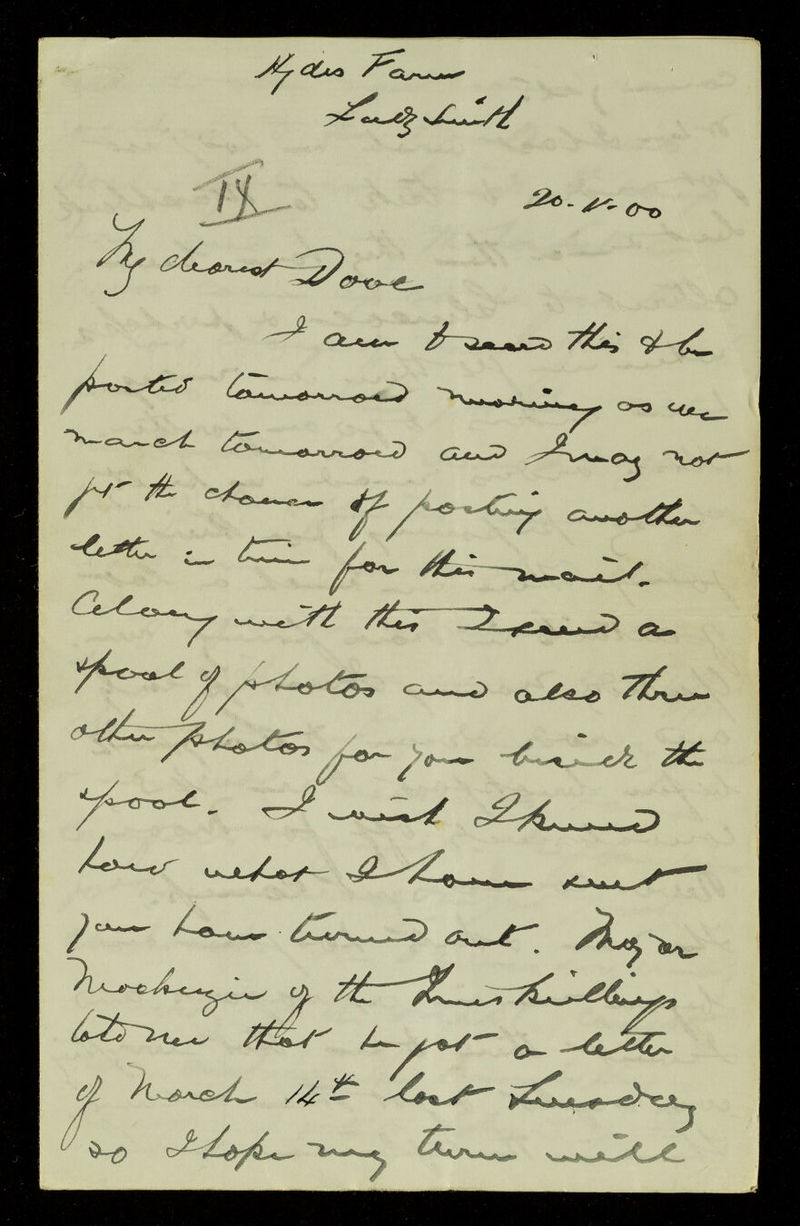 Hydes Farm
Ladysmith
IX
20-V-00
My dearest Dove
I am to send this to be
posted tomorrow morning as we
march tomorrow and I may not
get the chance of posting another
letter in time for this mail.
Along with this I send a
spool of photos and also three
other photos for you beside the
spool. I wish I knew
how what I have sent
you have turned out. Major
Mackenzie of the Inniskillings
told me that he got a letter
of March 14th last Tuesday
so I hope my turn will